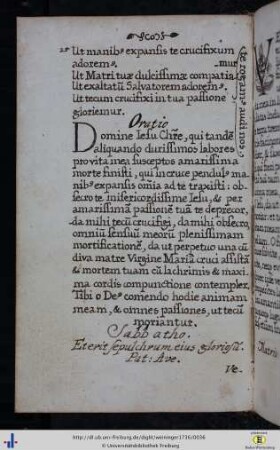 Ut manibꝰ expansis te crucifixum
adorem⸗ ⸗mur
Ut Matri tuæ dulcissimæ compatiar
Ut exaltatũ Salvatorem adorem⸗
Ut tecum crucifixi in tua passione
gloriemur.
te rogamꝰ audi nos.
Oratio
Domine Iesu Chr̃e, qui tandẽ
aliquando durissimos labores
pro vita mea susceptos amarissima
morte finisti, qui in cruce pendulꝰ ma⸗
nibꝰ expansis om̃ia ad te traxisti: ob⸗
secro te misericordissime Iesu, & per
amarissimã passionẽ tuã te deprecor,
da mihi tecũ crucifigi, da mihi obsecro
omniũ sensuũ meorũ plenissimam
mortificationẽ, da ut perpetuo una cũ
diva matre Virgine Mariâ cruci assistã
& mortem tuam cũ lachrimis & maxi⸗
ma cordis compunctione contempler.
Tibi o Deꝰ comendo hodie animam
meam, & omnes passiones, ut tecũ
moriantur.
Sabbatho.
Et erit sepulchrum eius gloriosũ.
Pat: Ave.
Ve⸗
http://dl.ub.uni-freiburg.de/diglit/weininger1736/0036
© Universitätsbibliothek Freiburg
Baden-Württemberg